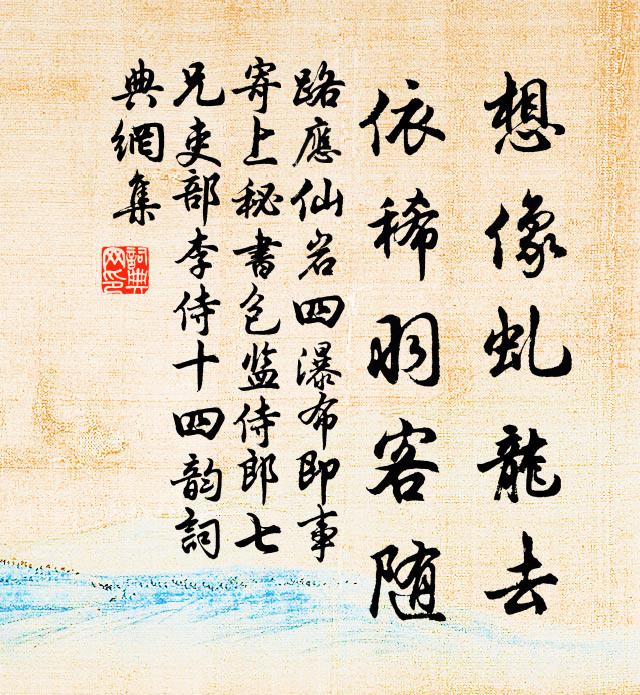 想像虬龍去
依稀羽客随
路應仙岩四瀑布即事
寄上秘書包监侍郎七
兄吏部李侍十四韵詞
典網集
詞典
网印